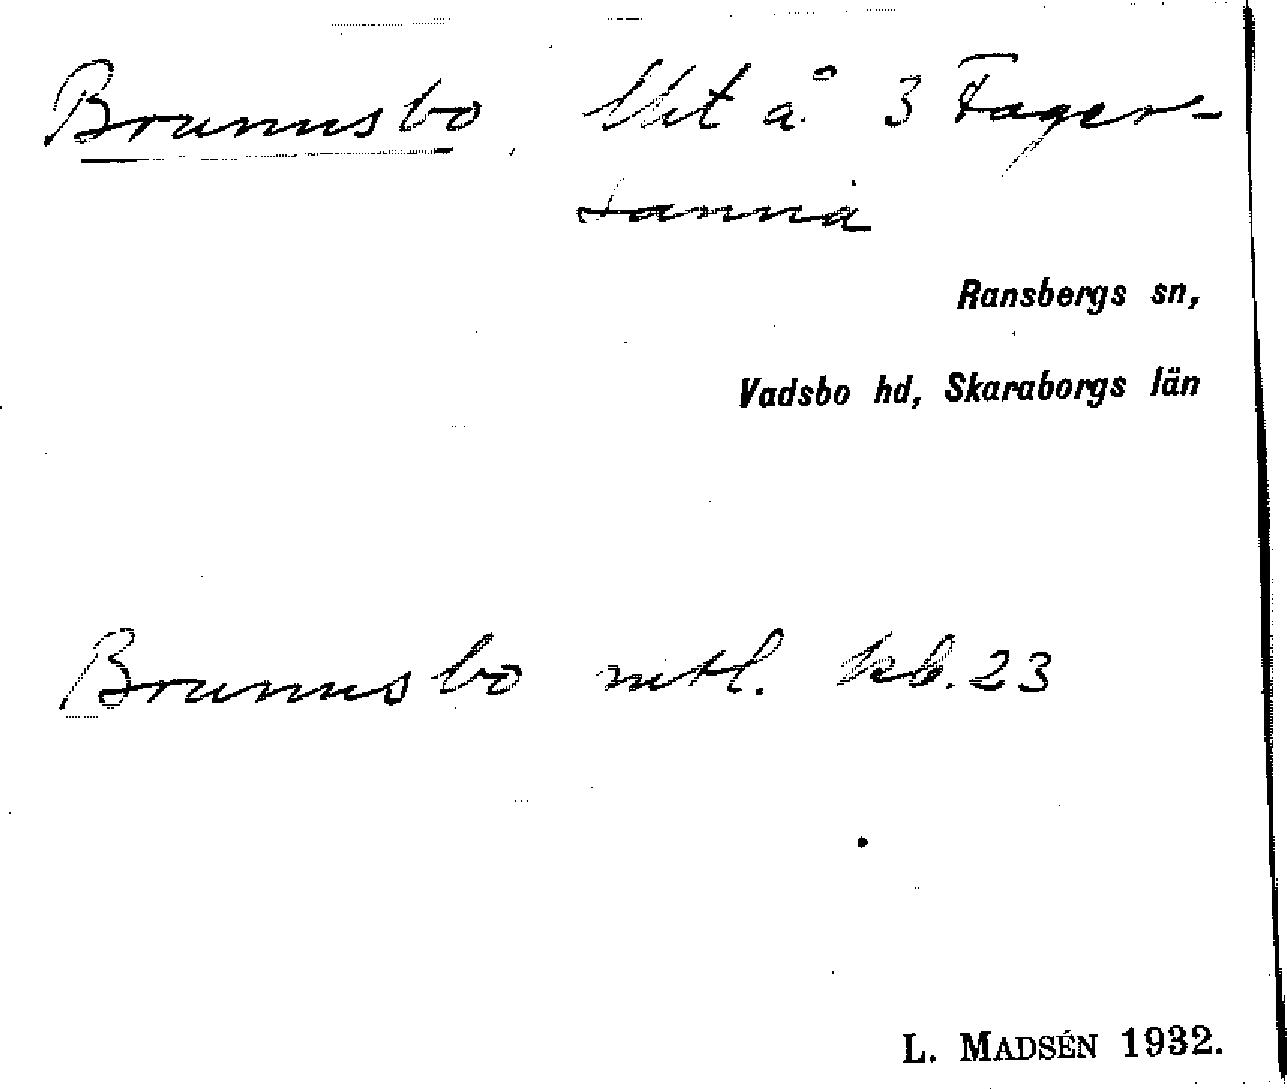 Brunnsbo, lht å 3 Fager-
sanna
Ransbergs sn,
Vadsbo hd, Skaraborgs län
Brunnsbo mtl. kb. 23
L. MADSÉN 1932.